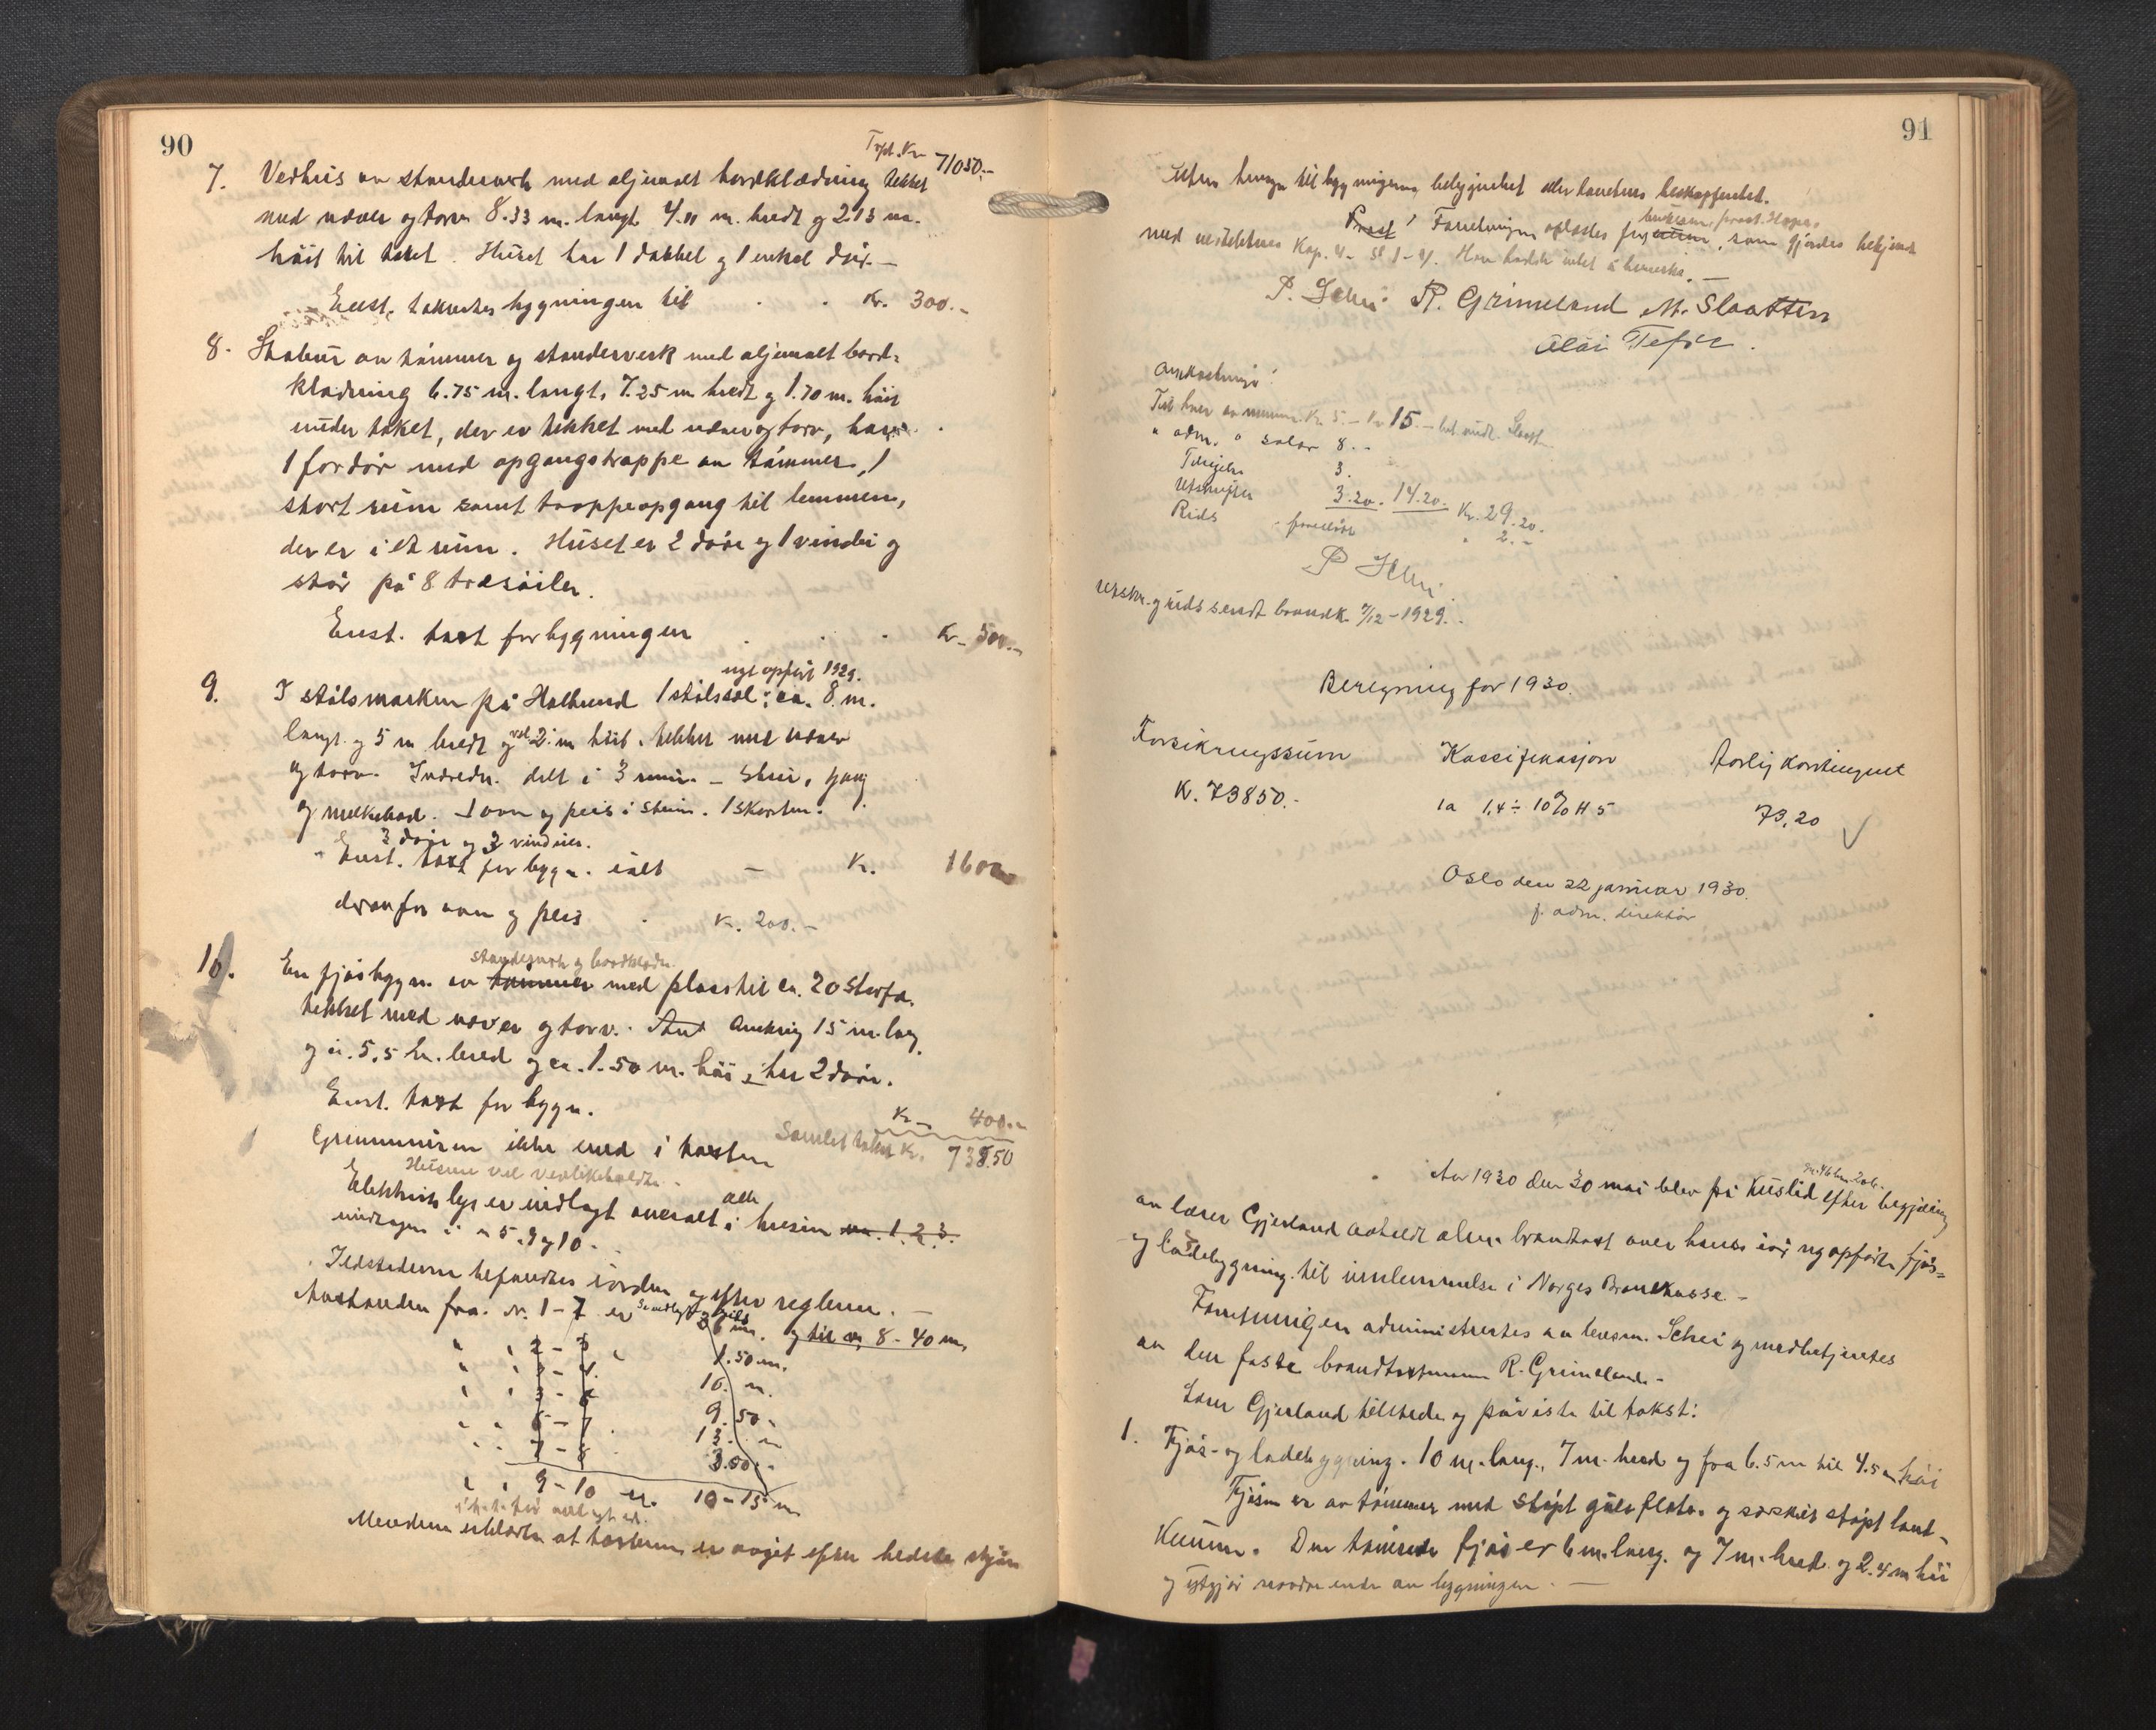 90
Trpt. Kr. 71050.-
7. Vedhus av standverk med oljemalt bordklædning tekket
med never og torv 8.33 m. langt 4.11 m. bredt og 2.13 m.
høit til taket. Huset har 1 dobbel og 1 enkel dør. -
Enst. takseres bygningen til . . Kr. 300.-
8. Stabur av tømmer og standerverk med oljemalt bord-
klædning 6.75 m. langt, 7.25 m bredt og 1.70 m. høit
under taket, der er tekket med never og torv, har
1 fordør med opgangstrappe av tømmer, 1
stort rum samt trappeopgang til lemmen,
der er i et rum. Huset er 2 døre og 1 vindu og
står på 8 træsøiler.
Enst. taxt for bygningen . . . Kr. 500.-
nyt opført 1929.
9. I stølsmarken på Holbund 1 stølssel: ca. 8 m.
langt og 5 m bredt og vel 2 m høit, tekket med never
og torv. Indredn. delt i 3 rum. - Stue, gang
og melkebod. 1 ovn og peis i stuen. 1 skorsten.
3 døre og 3 vinduer.
Enst. taxt for bygn. ialt - Kr. 1600
derav for ovn og peis . Kr. 200.-
standerverk og bordklædn.
10. En fjøsbygn. av tømmer med plass til ca. 20 storfæ.
tekket med never og torv. Omkring 15 m. lang
og ca. 5,5 m. bred og ca. 1.50 m. høi, har 2 døre.
Enst. taxt for bygn. Kr. 400.-
Grunnmuren ikke med i taxten Samlet takst Kr. 73850
Husene vel vedlikeholdte.
Elektrisk lys er indlagt overalt i alle husene nr. 1. 2. 3.
undtagen i nr 5. 9 og 10.
Ildstederne befandtes i orden og efter reglerne. -
Avstanden fra nr. 1 - 7 er 26 m. og til nr. 8 - 40 m.
" " 2 - 3 " 1.50 m.
" " 3 - 4. 10. m.
" " 3 - 6 9.50 "
" " 6 - 7 . 13. m
" " 7 - 8 3.50 "
" " 9 - 10 er. 10 - 15 m
Mændene erklærte at taxterne er avgit efter bedste skjøn
91
uten hensyn til bygningernes beliggenhet eller tomtens beskaffenhet.
brukeren, prost Hopes,
Prost ! Forretningen oplæstes for eieren, som gjordes bekjent
med vedtektenes Kap. 4 - §§ 1 - 4. Han hadde intet å bemerke. -
P. Schei R. Grimeland M. Slaatten
Omkostninger:
Til hver av mennene Kr 5. - Kr 15. -
" adm. " salær 8. -
Tilsigelse 3.
Utskrifter 3.20. 14.20. Kr. 29.20.
Rids " 2. -
P Schei
Utskr. og rids sendt brandk. 7/12 - 1929.
Beregning for 1930.
Forsikringssum Klassifikasjon Aarlig kontingent
Kr. 73850.- 1a 1,4 ÷ 10% H 5 73,20 ✓
Oslo den 22 januar 1930.
f. adm. direktør
Aar 1930 den 30 mai blev på Kuslid efter begjæring
av lærer Gjerland avholdt alm. brandtaxt over hans iår nyopførte fjøs-
og ladebygning til innlemmelse i Norges Brandkasse -
Forretningen administrertes av lensm. Schei og medbetjentes
av den faste brandtaxtmann R. Grimeland. -
Lærer Gjerland tilstede og påviste til takst:
1. Fjøs- og ladebygning. 10 m. lang, 7 m. bred og fra 6.5 m til 4.5 m høi
Fjøsen er av tømmer med støpt gulv flater og særskilt støpt land-
kum. Den tømrede fjøs er 6 m. lang. og 7 m. bred og 2.4 m høi
og utgjør nordre ende av bygningen. -